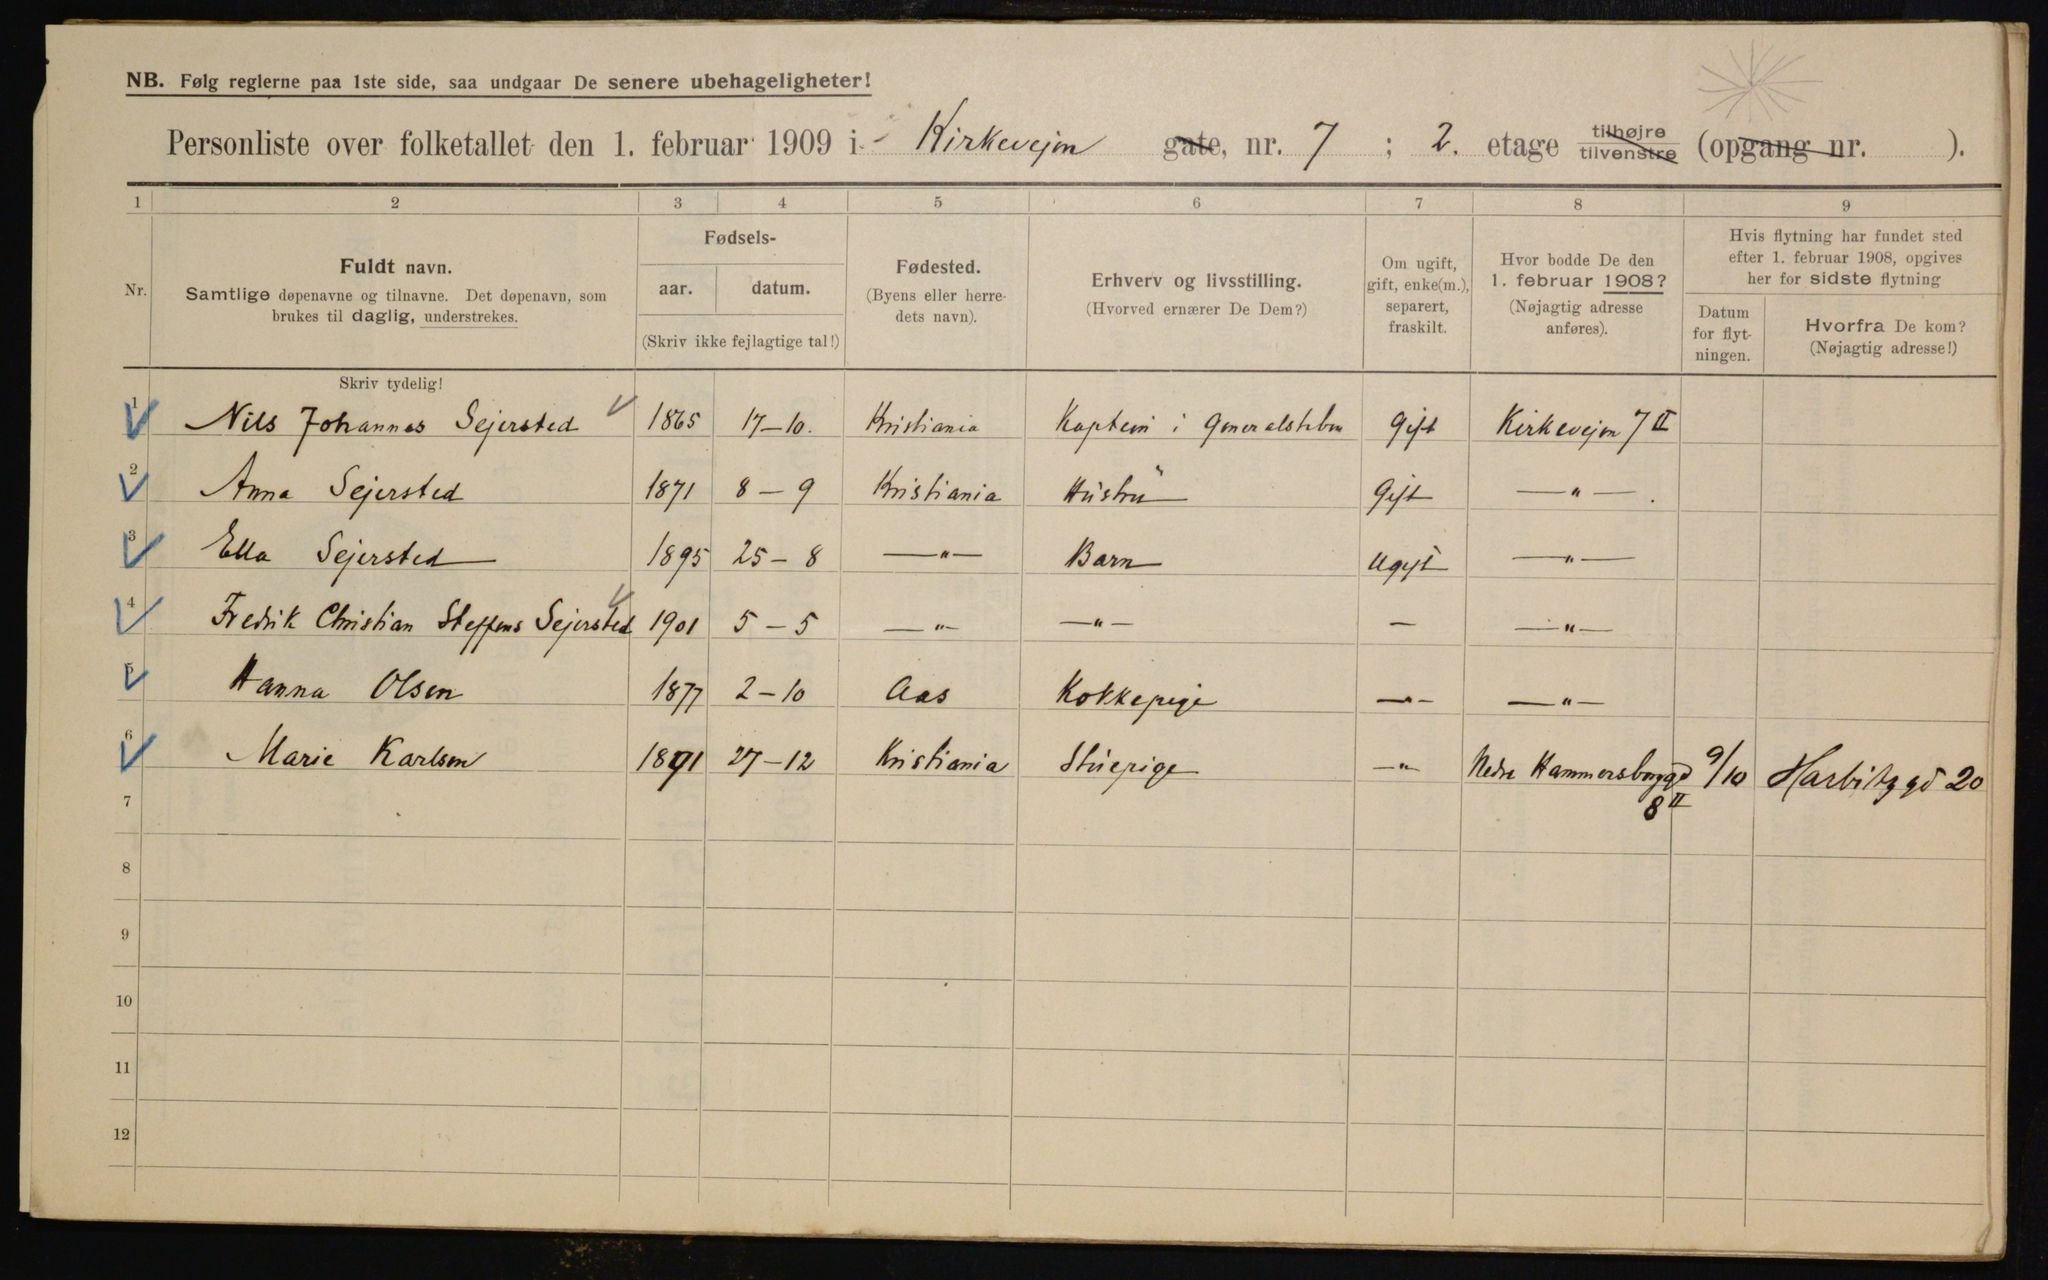 NB. Følg reglerne paa 1ste side, saa undgaar De senere ubehageligheter!
Personliste over folketallet den 1. februar 1909 i Kirkevejen gate, nr. 7 ; 2. etage tilhøjre tilvenstre (opgang nr. ).
1 2 3 4 5 6 7 8 9
Nr.
Fuldt navn.
Samtlige døpenavne og tilnavne. Det døpenavn, som
brukes til daglig, understrekes.
Fødsels-
aar. datum.
(Skriv ikke fejlagtige tal!)
Fødested.
(Byens eller herre-
dets navn).
Erhverv og livsstilling.
(Hvorved ernærer De Dem?)
Om ugift,
gift, enke(m.),
separert,
fraskilt.
Hvor bodde De den
1. februar 1908?
(Nøjagtig adresse
anføres).
Hvis flytning har fundet sted
efter 1. februar 1908, opgives
her for sidste flytning
Datum
for flyt-
ningen.
Hvorfra De kom?
(Nøjagtig adresse!)
Skriv tydelig!
1 Nils Johannes Sejersted 1865 17-10. Kristiania Kaptein i Generalstaben Gift Kirkevejen 7 II
2 Anna Sejersted 1871 8-9 Kristiania Hustru Gift —"— .
3 Ella Sejersted 1895 25-8 —"— Barn Ugift —"—
4 Fredrik Christian Steffens Sejersted 1901 5-5 —"— —"— — —"—
5 Hanna Olsen 1877 2-10 Aas Kokkepige —"— —"—
6 Marie Karlsen 1891 27-12 Kristiania Stuepige —"— Nedre Hammersborggd 9/10 Harbitzgd 20
8 II
7
8
9
10
11
12